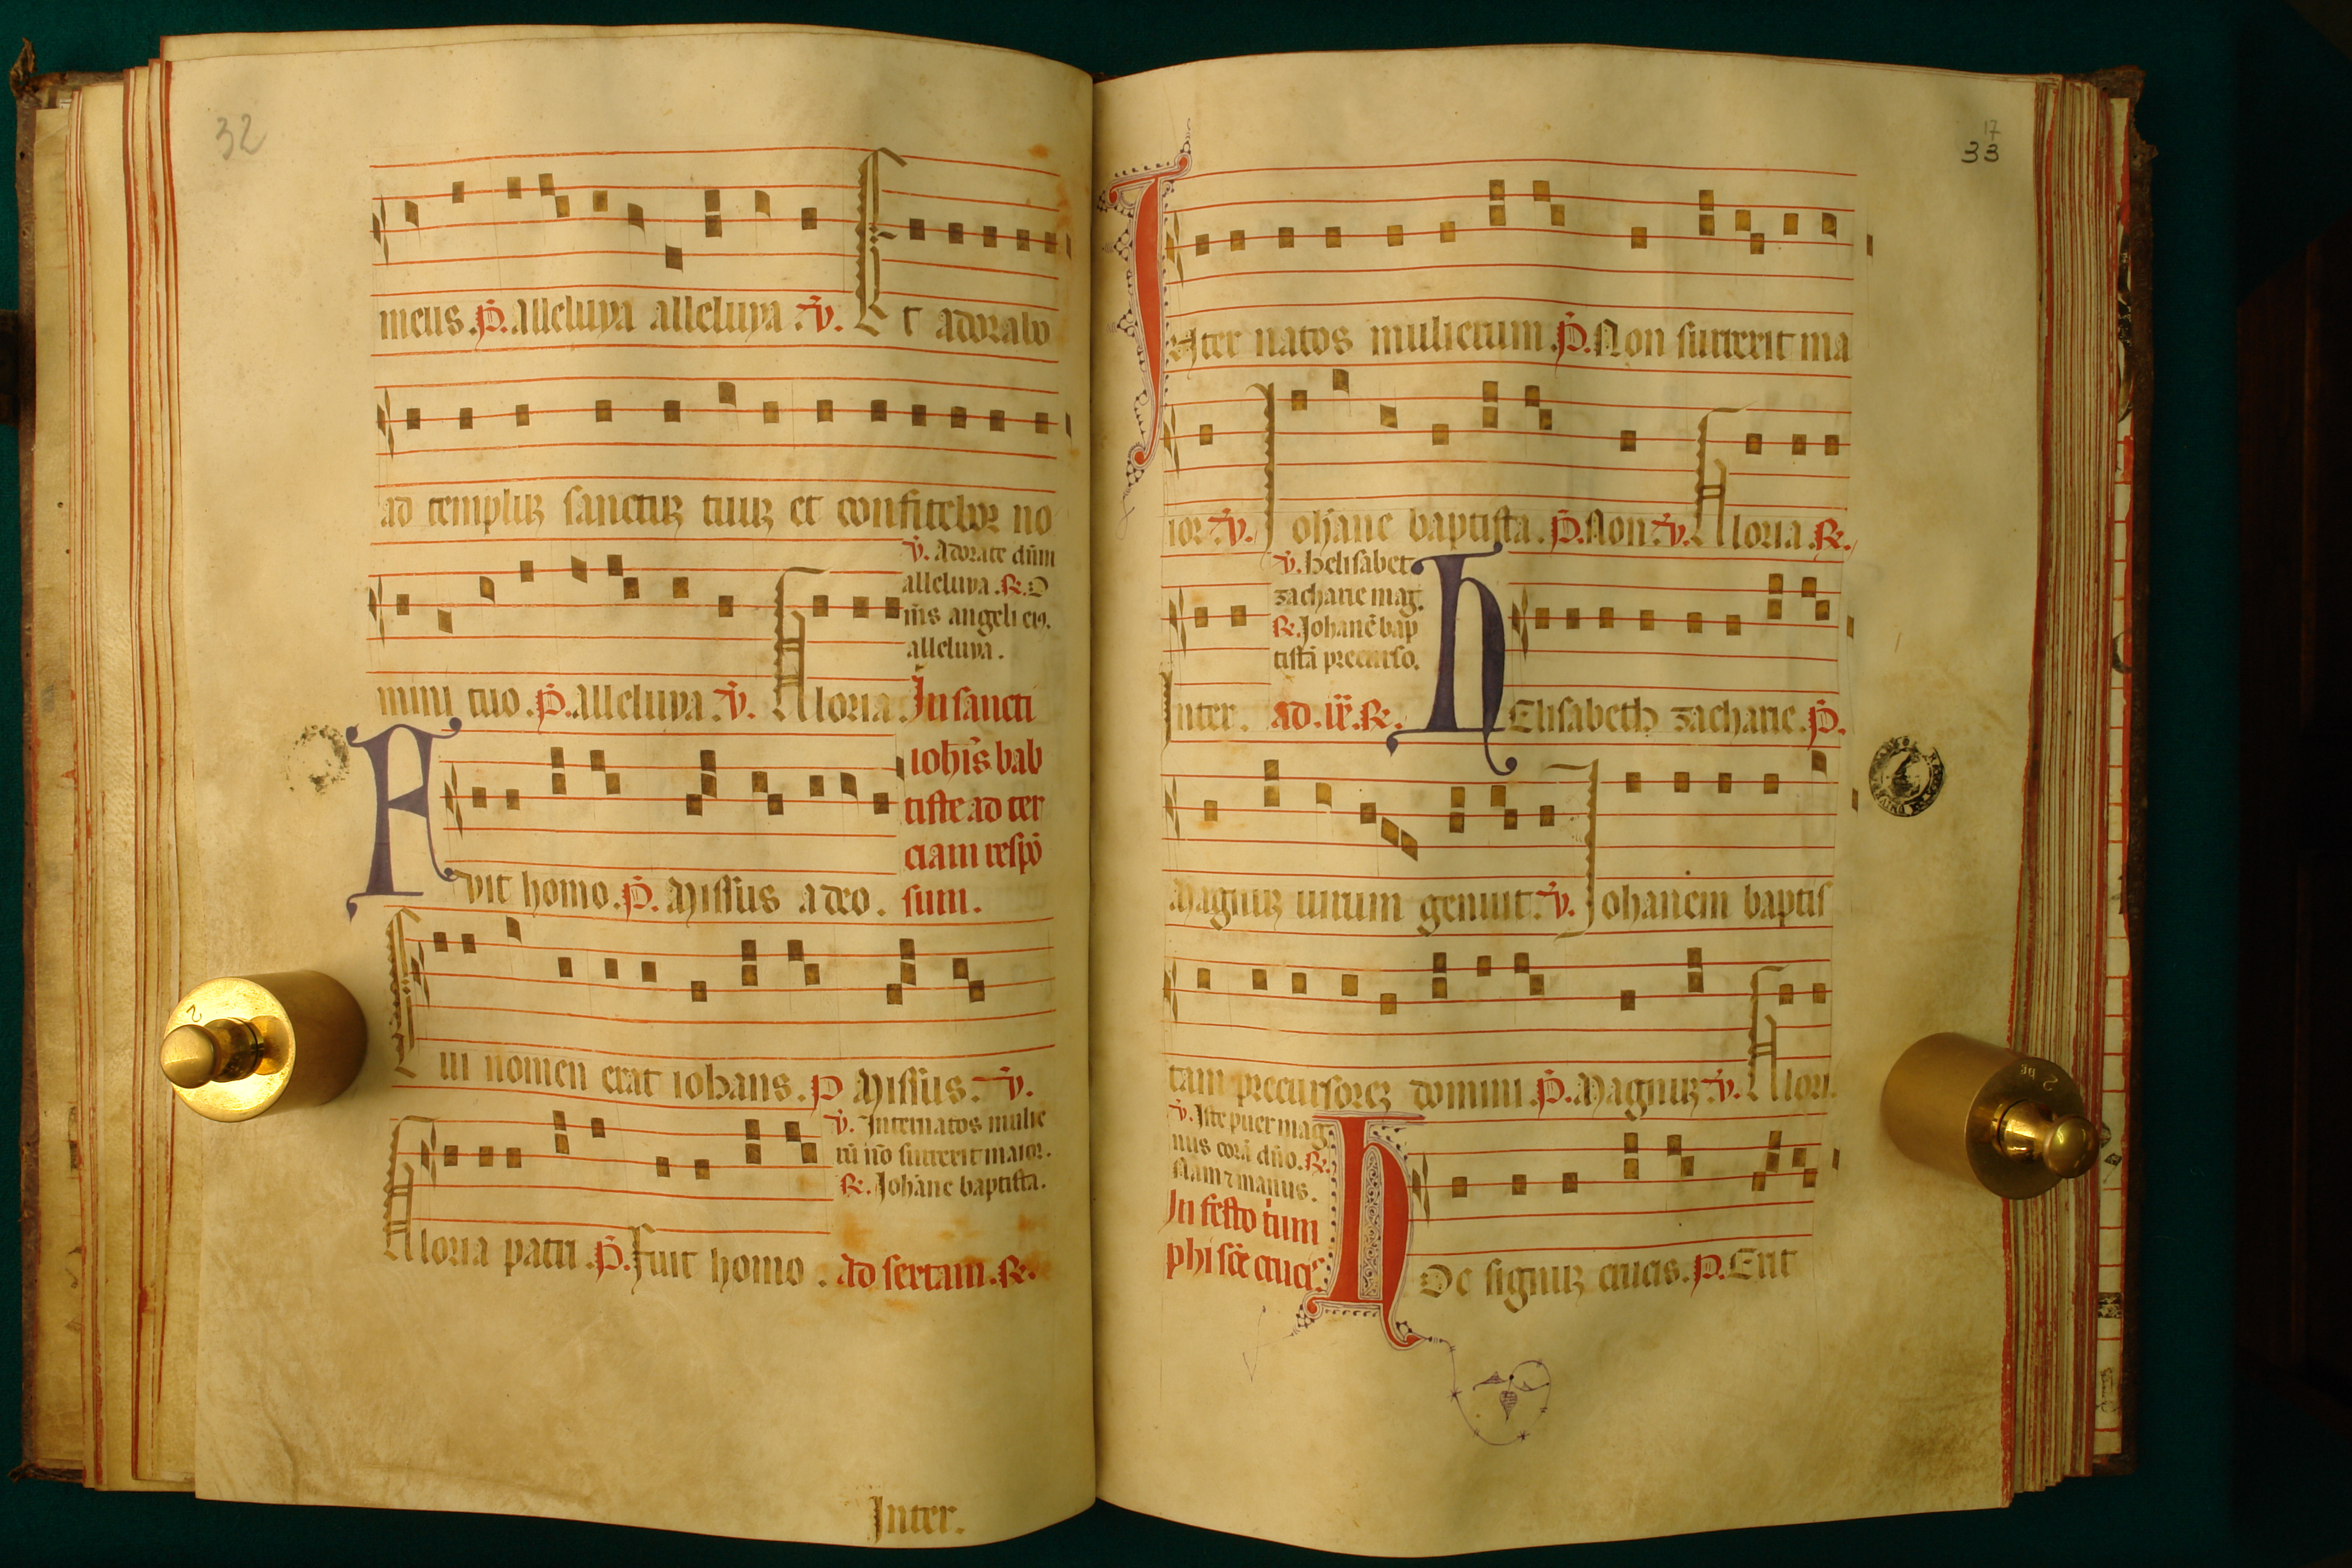 32
meus. P. alleluya alleluya. V. Et adorabo
ad templuz sanctuz tuuz et confitebor no
V. Adorate dnm
alleluya. R. O
mnis angeli eiꝰ.
alleluya.
mini tuo. P. alleluya. V. Gloria. In sancti
iohis bab
tiste ad ter
ciam respo
Fuit homo. P. Missus a deo. sum.
Cui nomen erat iohans. P Missus. V.
V. Inter natos mulie
rū nō surrexit maior.
R. Johane baptista.
Gloria patri. P. Fuit homo. ad sextam. R.
Inter.
17
33
Inter natos mulierum. P. Non surrexit ma
ior. V. Johane baptista. P. Non. V. Gloria. R.
V. helisabet
zacharie mag.
R. Johanē bap
tistā precurso.
Inter. ad. ix. R. hElisabeth zacharie. P.
Magnuz uirum genuit. V. Johanem baptis
tam precursorez domini. P. Magnuz. V. Glori.
V. Iste puer mag
nus corā dn̄o. R.
Nam ⁊ manus.
In festo trium
phi scē crucis
hOc signuz crucis. P. Erit